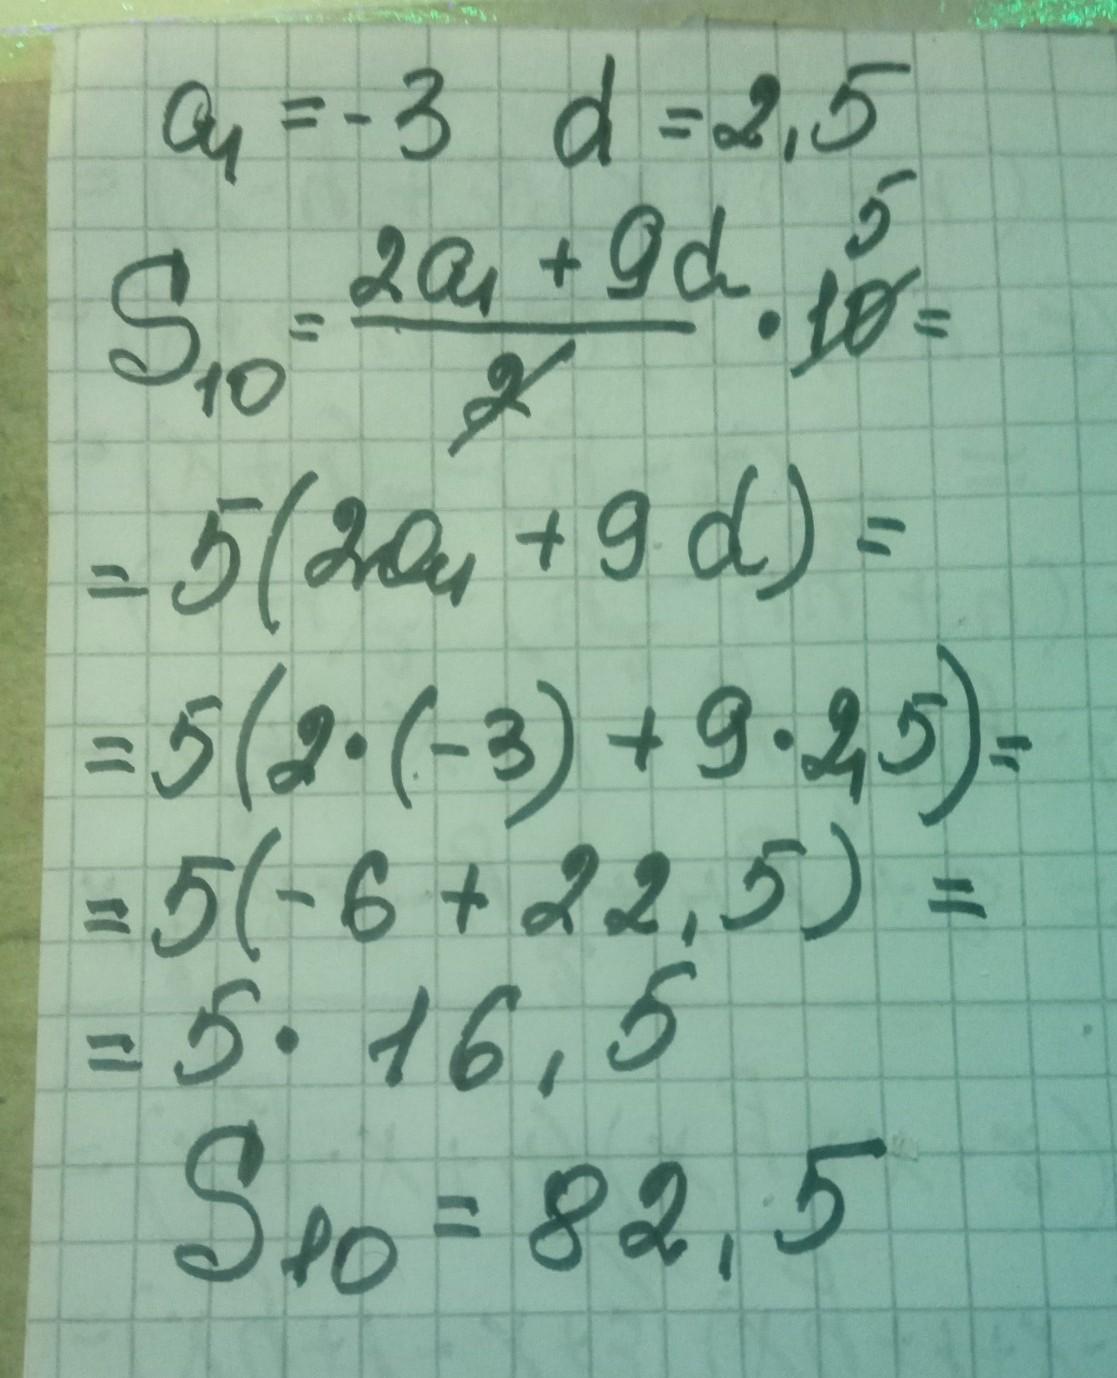 a₁ = -3 d = 2,5
S₁₀ = (2a₁ + 9d)/2 · 10 = 5
= 5(2a₁ + 9 d) =
= 5(2·(-3) + 9·2,5) =
= 5(-6 + 22,5) =
= 5 · 16,5
S₁₀ = 82,5